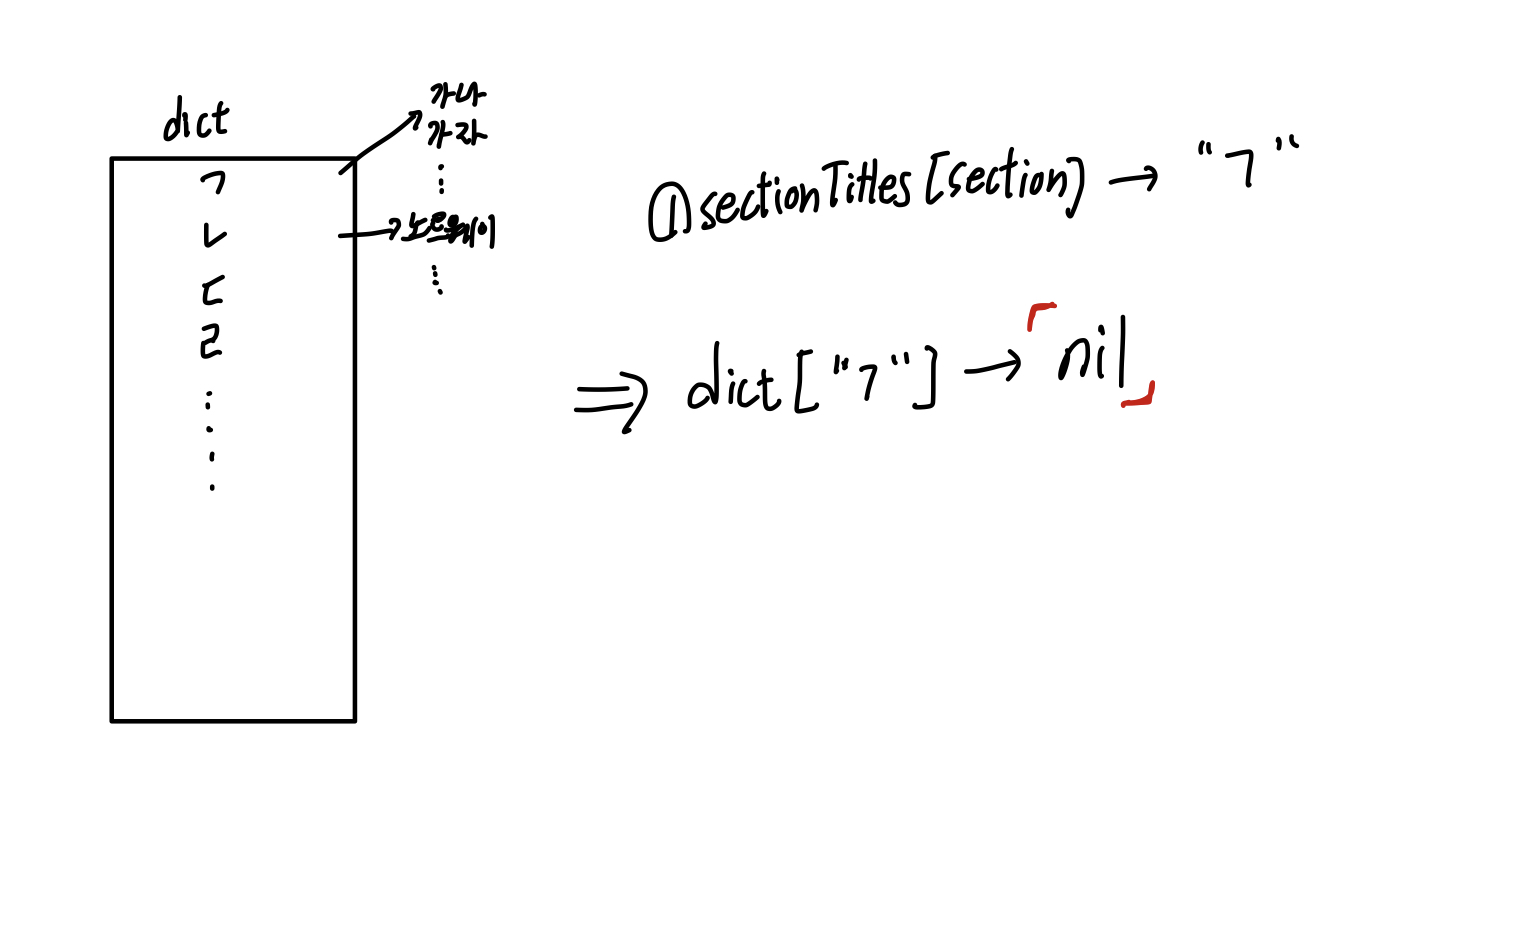 dict
ㄱ
ㄴ
ㄷ
ㄹ
⋮
가나
가라
⋮
⋮
① sectionTitles [section] → "ㄱ"
⇒ dict ["ㄱ"] → 「nil」